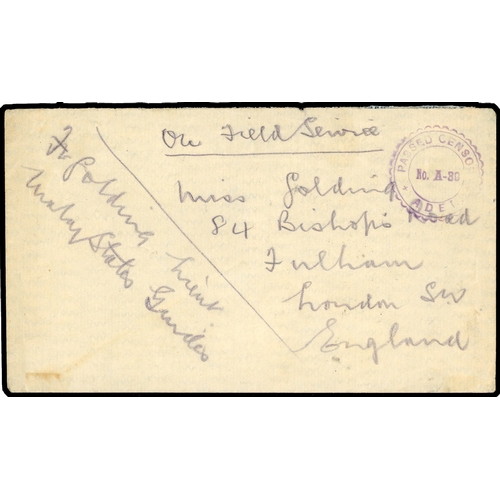 On Field Service
Miss Golding
84 Bishops Road
Fulham
London SW
England
F Golding Lieut
Malay States Guides
PASSED CENSOR
No. A-30
ADEN